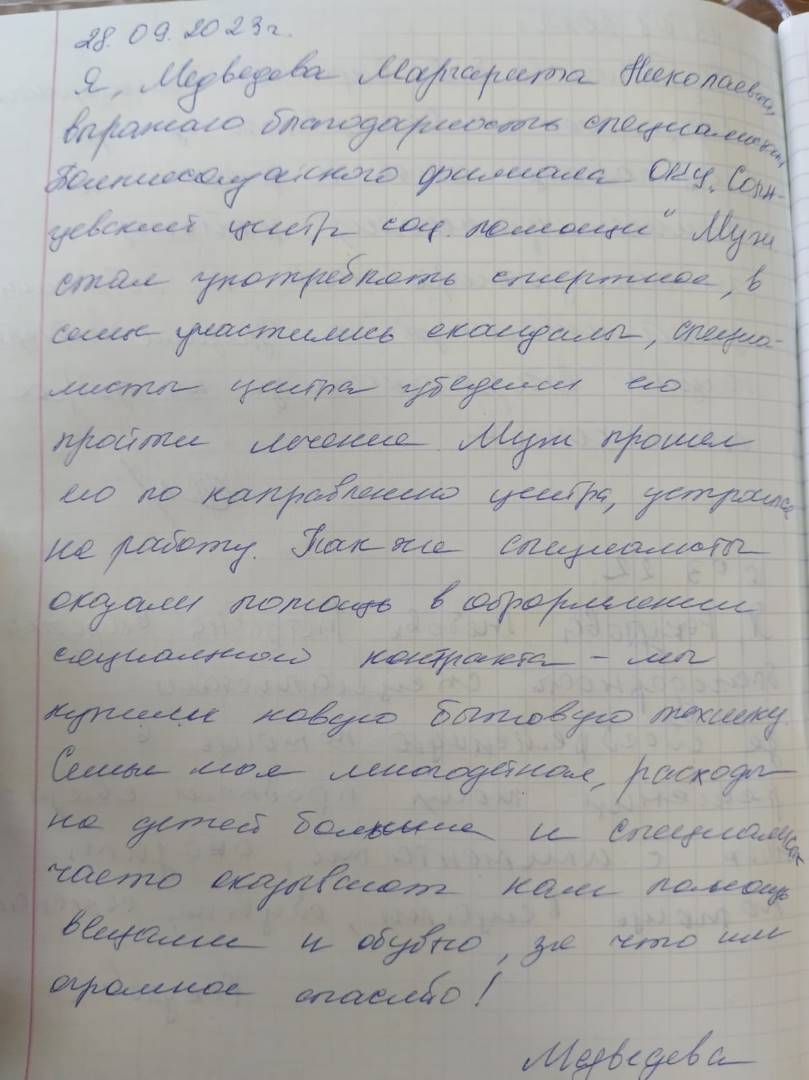 28.09.2023г.
Я, Медведева Маргарита Николаевна,
выражаю благодарность специалистам
Большесолдатского филиала ОКУ „Солн-
цевский центр соц. помощи" Муж
стал употреблять спиртное, в
семье участились скандалы, специа-
листы центра убедили его
пройти лечение. Муж прошел
его по направлению центра, устроился
на работу. Также специалисты
оказали помощь в оформлении
социального контракта - мы
купили новую бытовую технику.
Семья моя многодетная, расходы
на детей большие и специалисты
часто оказывают нам помощь
вещами и обувью, за что им
огромное спасибо!
Медведева